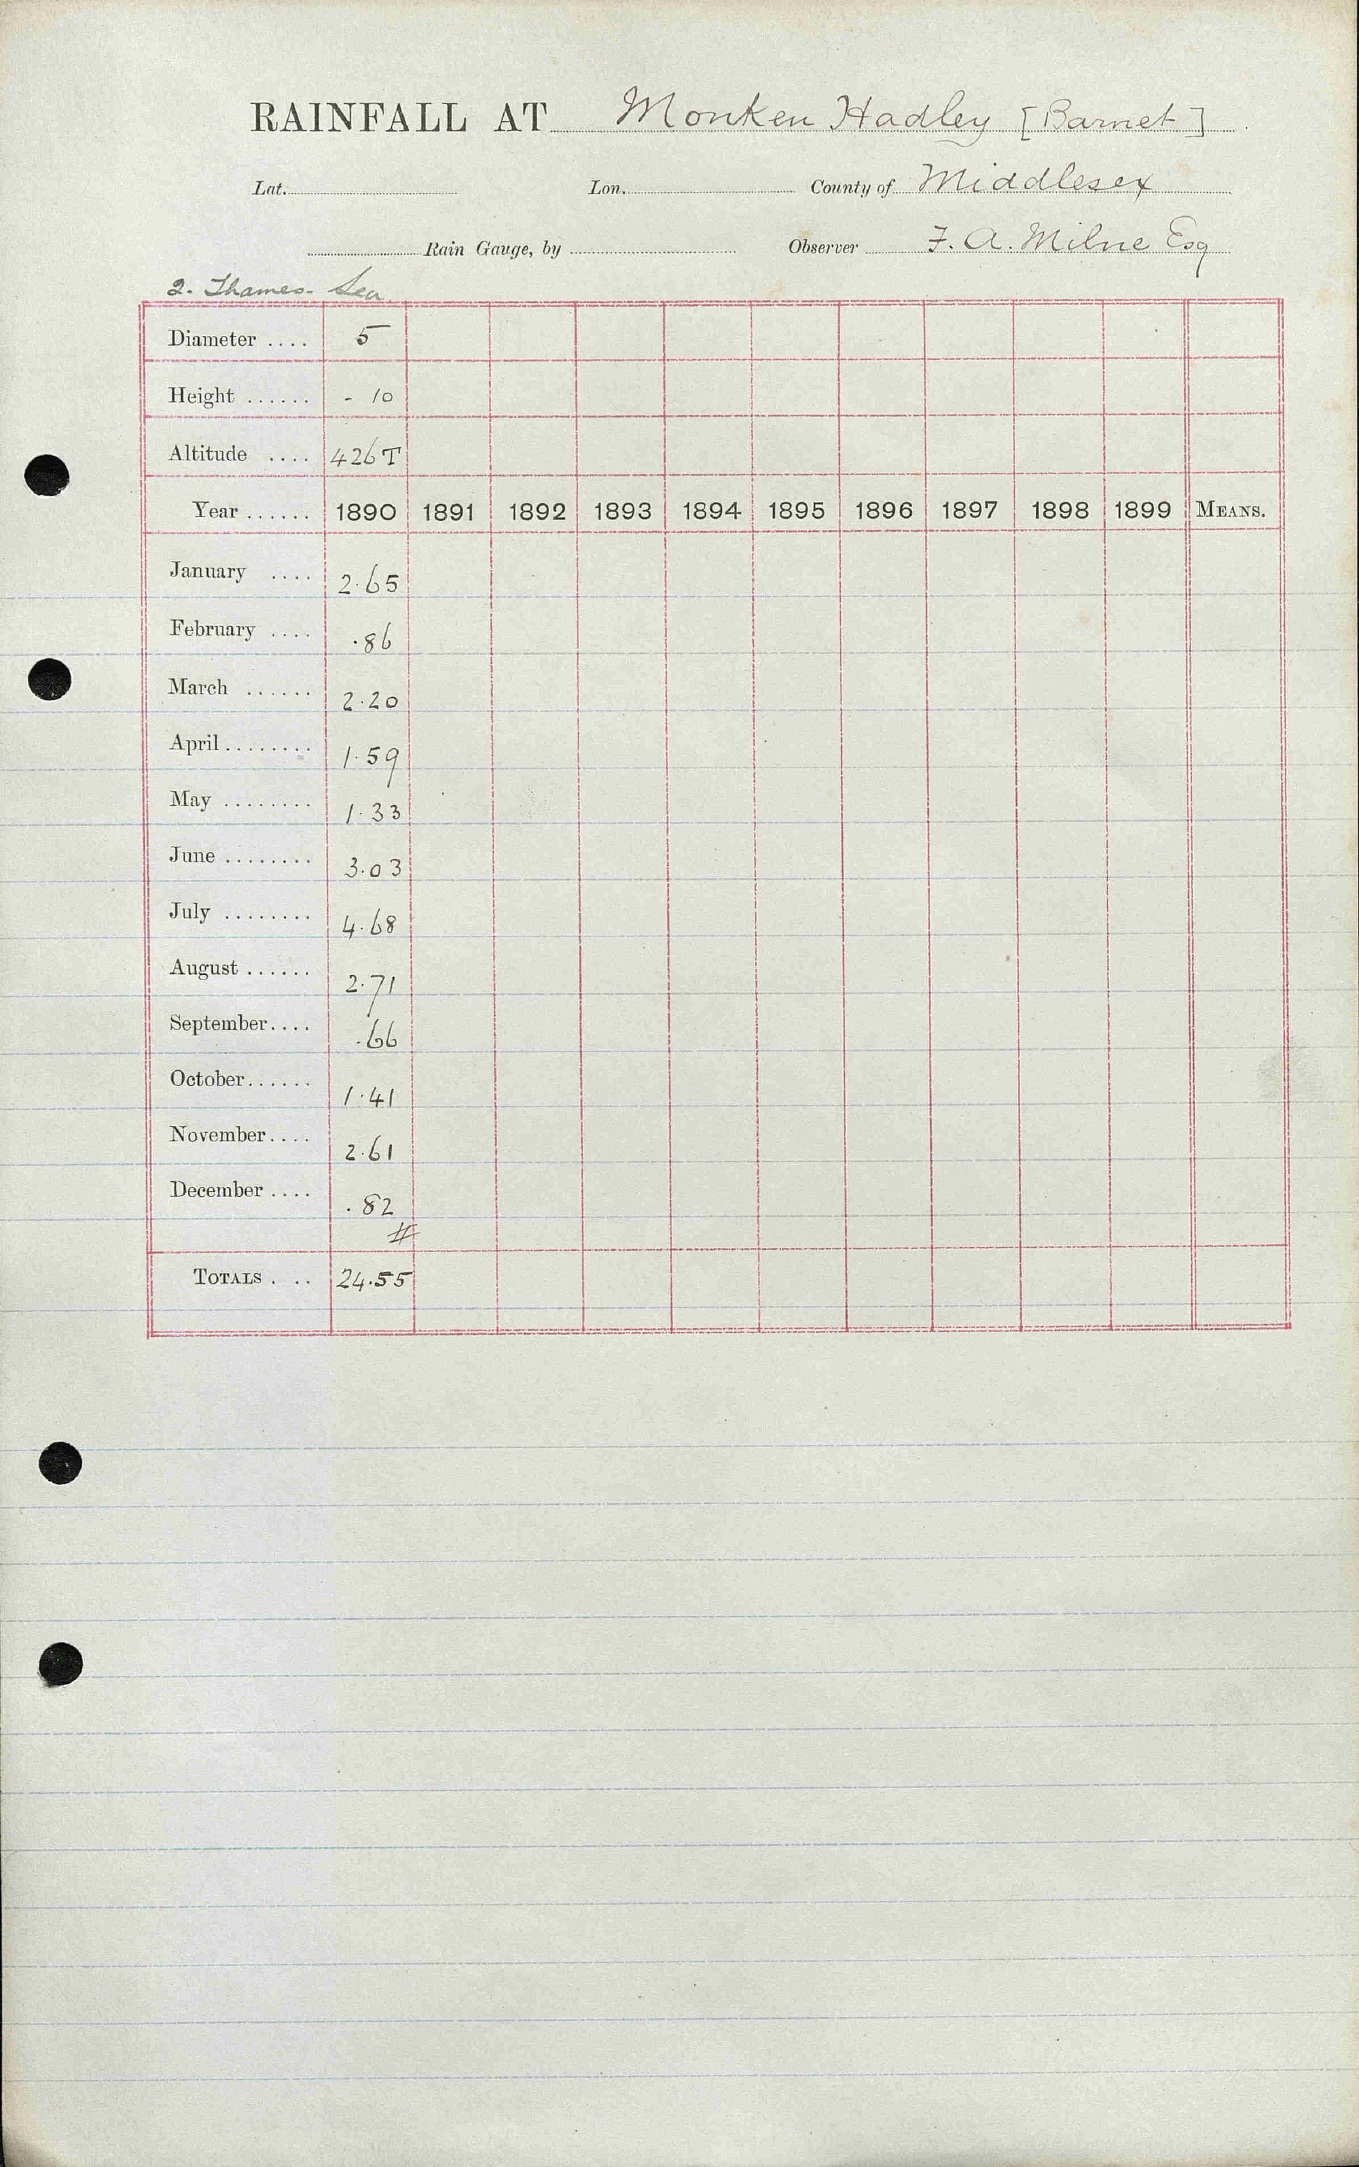 RAINFALL AT Monken Hadley [Barnet]
Lat. Lon. County of Middlesex
Rain Gauge, by Observer F. A. Milne Esq
2. Thames - Sea
Diameter .... 5
Height ...... - 10
Altitude .... 426 T
Year ...... 1890 1891 1892 1893 1894 1895 1896 1897 1898 1899 MEANS.
January .... 2.65
February .... .86
March ...... 2.20
April ........ 1.59
May ........ 1.33
June ........ 3.03
July ........ 4.68
August ...... 2.71
September .... .66
October ...... 1.41
November .... 2.61
December .... .82
#
TOTALS . .. 24.55